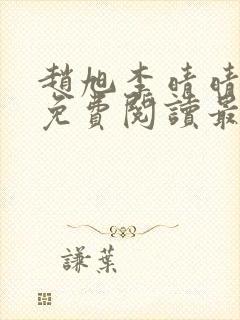 趙旭李晴晴
免費閱讀最
謙葉